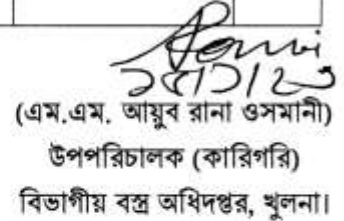 (এম.এম. আয়ুব রানা ওসমানী)
উপপরিচালক (কারিগরি)
বিভাগীয় বস্ত্র অধিদপ্তর, খুলনা।